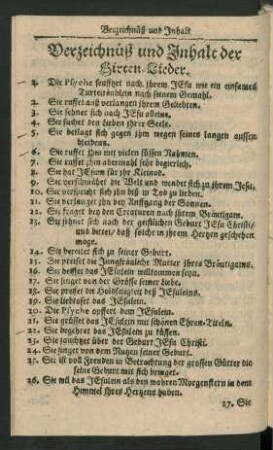 Verzeichnüß und Inhalt
Verzeichnüß und Inhalt der
Hirten-Lieder.
1. Die Psyche seuffzet nach ihrem JEsu wie ein einsames
Turteltäublein nach seinem Gemahl.
2. Sie ruffet auß verlangen ihrem Geliebten.
3. Sie sehnet sich nach JEsu alleine.
4. Sie suchet den Lieben ihrer Seele.
5. Sie beklagt sich gegen ihm wegen seines langen aussen-
bleibens.
6. Sie ruffet ihm mit vielen süssen Nahmen.
7. Sie ruffet ihm abermahl sehr begierlich.
8. Sie hat JEsum für ihr Kleinod.
9. Sie verschmähet die Welt und wendet sich zu ihrem Jesu.
10. Sie verspricht sich ihn biß in Tod zu lieben.
11. Sie verlanget ihn bey Auffgang der Sonnen.
12. Sie fraget bey den Creaturen nach ihrem Bräutigam.
13. Sie sehnet sich nach der geistlichen Geburt JEsu Christi
und bittet daß solche in ihrem Hertzen geschehen
möge.
14. Sie bereitet sich zu seiner Geburt.
15. Sie preiset die Jungfräuliche Mutter ihres Bräutigams.
16. Sie heisset das JEsulein willkommen seyn.
17. Sie singet von der Grösse seiner Liebe.
18. Sie preiset die Holdseligkeit deß JEsuleins.
19. Sie liebkoset das JEsulein.
20. Die Psyche opffert dem JEsulein.
21. Sie grüsset das JEsulein mit schönen Ehren-Titeln.
22. Sie begehret das JEsulein zu küssen.
23. Sie jauchtzet über der Geburt JEsu Christi.
24. Sie singet von dem Nutzen seiner Geburt.
25. Sie ist voll Freuden in Betrachtung der grossen Gütter die
seine Geburt mit sich bringet.
26. Sie wil das JEsulein als den wahren Morgenstern in dem
Himmel ihres Hertzens haben.
27. Sie